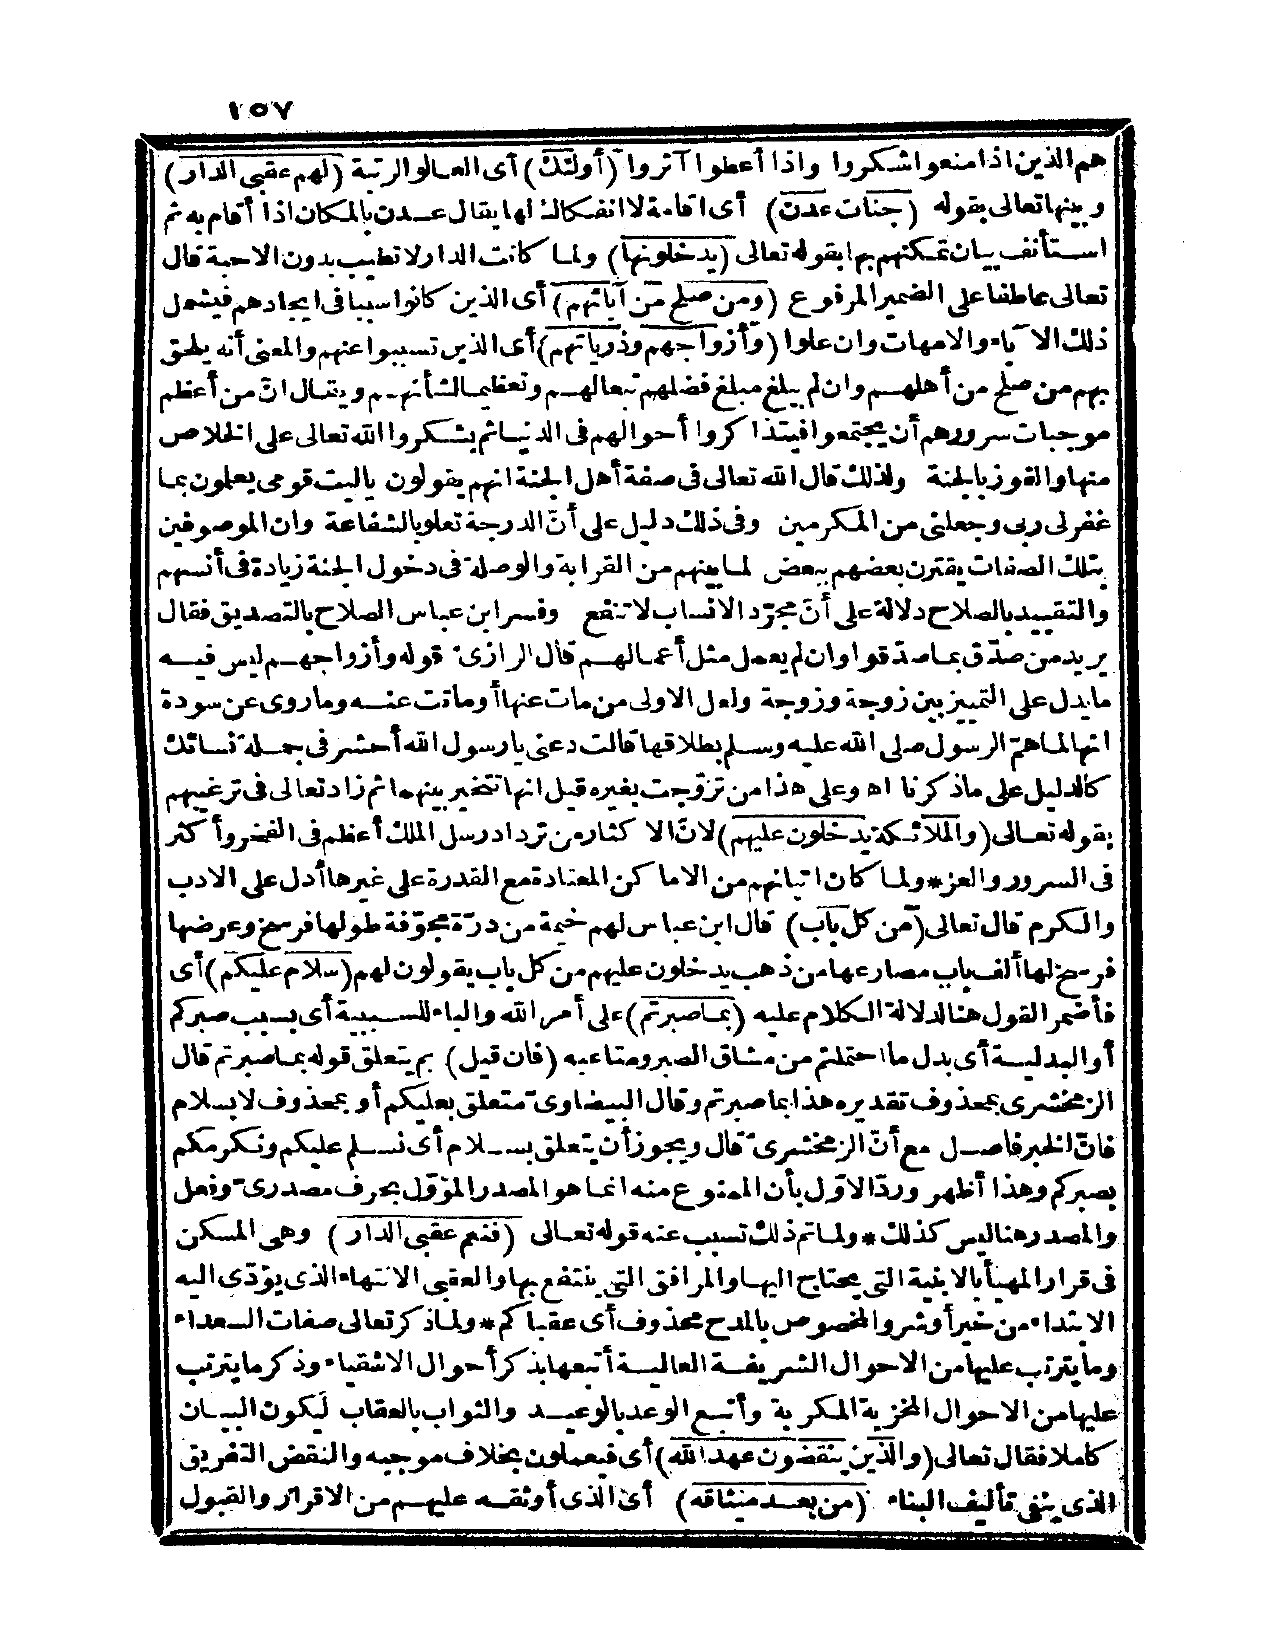 ١٥٧
هم الذين اذا منعوا شكروا واذا أعطوا آثروا (أولئك) أى العالو الرتبة (لهم عقبى الدار)
وبينها تعالى بقوله (جنات عدن) أى اقامة لا انفكاك لها يقال عدن بالمكان اذا أقام به ثم
استأنف بيان تمكنهم بها بقوله تعالى (يدخلونها) ولما كانت الدار لا تطيب بدون الاحبة قال
تعالى عاطفا على الضمير المرفوع (ومن صلح من آبائهم) أى الذين كانوا سببا فى ايجادهم فيشمل
ذلك الآباء والامهات وان علوا (وأزواجهم وذرياتهم) أى الذين تسببوا عنهم والمعنى أنه يلحق
بهم من صلح من أهلهم وان لم يبلغ مبلغ فضلهم تبعا لهم وتعظيما لشأنهم ويقال انّ من أعظم
موجبات سرورهم أن يجتمعوا فيتذاكروا أحوالهم فى الدنيا ثم يشكروا الله تعالى على الخلاص
منها والفوز بالجنة ولذلك قال الله تعالى فى صفة أهل الجنة انهم يقولون ياليت قومى يعلمون بما
غفر لى ربى وجعلنى من المكرمين وفى ذلك دليل على أنّ الدرجة تعلو بالشفاعة وان الموصوفين
بتلك الصفات يقترن بعضهم ببعض لما بينهم من القرابة والوصلة فى دخول الجنة زيادة فى أنسهم
والتقييد بالصلاح دلالة على أنّ مجرّد الانساب لا تنفع وفسر ابن عباس الصلاح بالتصديق فقال
يريد من صدّق بما صدقوا وان لم يعمل مثل أعمالهم قال الرازى قوله وأزواجهم ليس فيه
ما يدل على التمييز بين زوجة وزوجة ولعل الاولى من مات عنها أو ماتت عنه وما روى عن سودة
انها لما همّ الرسول صلى الله عليه وسلم بطلاقها قالت دعنى يا رسول الله أحشر فى جملة نسائك
كالدليل على ما ذكرنا اه وعلى هذا من تزوّجت بغيره قيل انها تتخير بينهما ثم زاد تعالى فى ترغيبهم
بقوله تعالى (والملائكة يدخلون عليهم) لانّ الاكثار من ترداد رسل الملك أعظم فى الفخر وأكثر
فى السرور والعز* ولما كان اتيانهم من الاماكن المعتادة مع القدرة على غيرها أدل على الادب
والكرم قال تعالى (من كل باب) قال ابن عباس لهم خيمة من درّة مجوّفة طولها فرسخ وعرضها
فرسخ لها ألف باب مصارعها من ذهب يدخلون عليهم من كل باب يقولون لهم (سلام عليكم) أى
فأضمر القول هنا لدلالة الكلام عليه (بما صبرتم) على أمر الله والباء للسببية أى بسبب صبركم
أو البدلية أى بدل ما احتملتم من مشاق الصبر ومتاعبه (فان قيل) بم يتعلق قوله بما صبرتم قال
الزمخشرى بمحذوف تقديره هذا بما صبرتم وقال البيضاوى متعلق بعليكم أو بمحذوف لا بسلام
فانّ الخبر فاصل مع أنّ الزمخشرى قال ويجوز أن يتعلق بسلام أى نسلم عليكم ونكرمكم
بصبركم وهذا أظهر وردّ الاوّل بأن الممنوع منه انما هو المصدر المؤوّل بحرف مصدرى وفعل
والمصدر هنا ليس كذلك* ولما تم ذلك تسبب عنه قوله تعالى (فنعم عقبى الدار) وهى المسكن
فى قرار المهيأ بالابنية التى يحتاج اليها والمرافق التى ينتفع بها والعقبى الانتهاء الذى يؤدّى اليه
الابتداء من خير أو شر والمخصوص بالمدح محذوف أى عقباكم* ولما ذكر تعالى صفات السعداء
وما يترتب عليها من الاحوال الشريفة العالية أتبعها بذكر أحوال الاشقياء وذكر ما يترتب
عليها من الاحوال المخزية المكربة وأتبع الوعد بالوعيد والثواب بالعقاب ليكون البيان
كاملا فقال تعالى (والذين ينقضون عهد الله) أى فيعملون بخلاف موجبه والنقض التفريق
الذى ينفى تأليف البناء (من بعد ميثاقه) أى الذى أوثقه عليهم من الاقرار والقبول